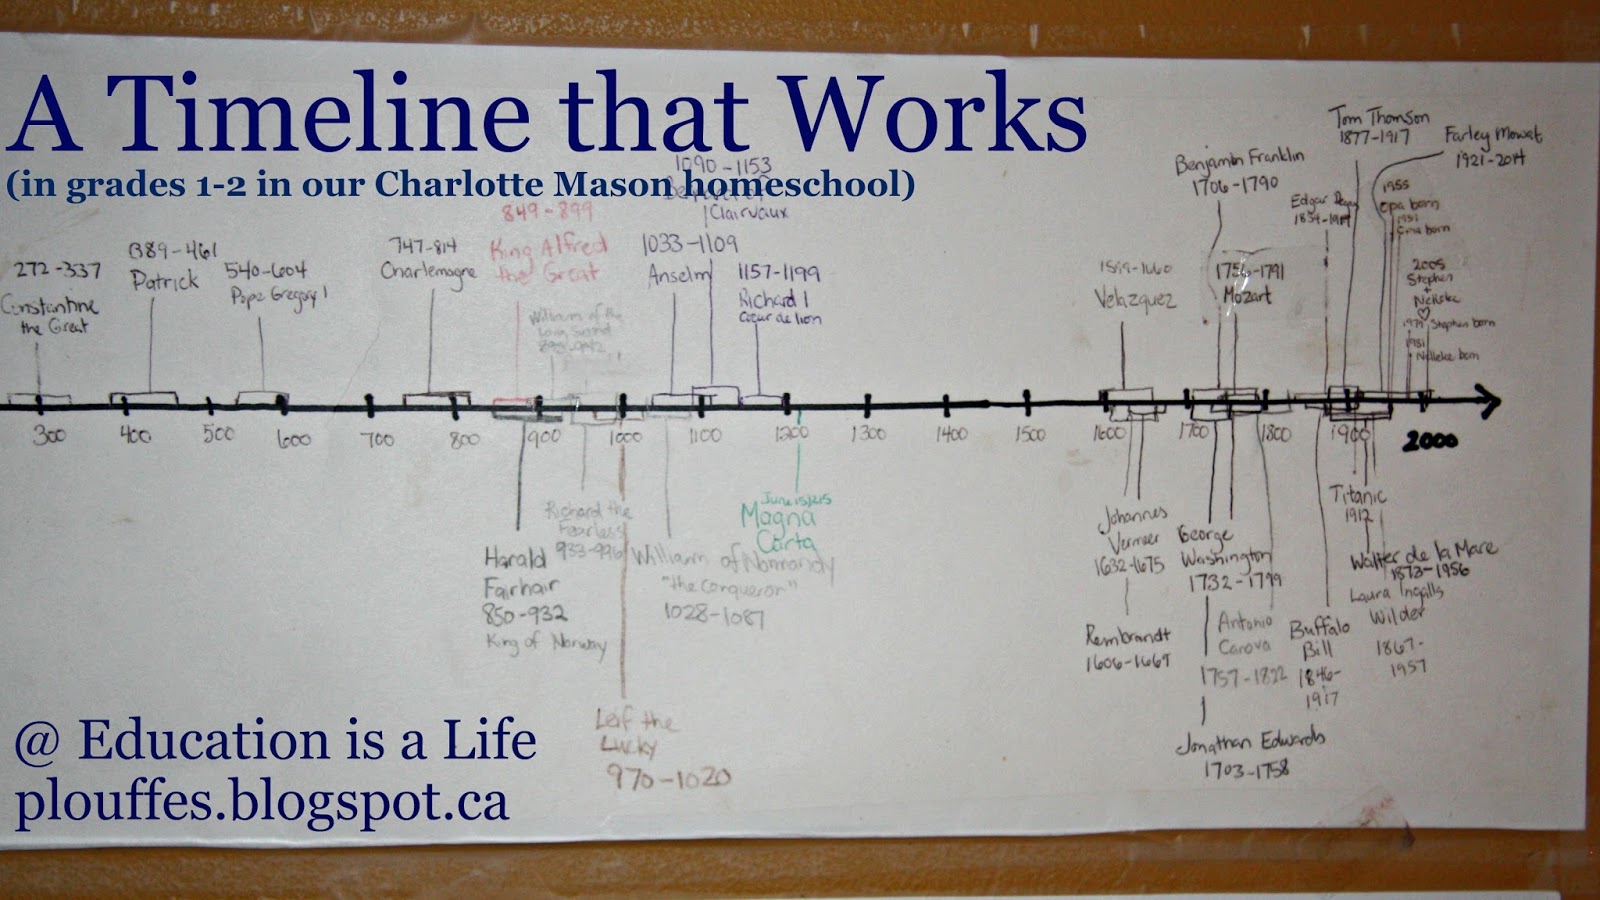 A Timeline that Works
(in grades 1-2 in our Charlotte Mason homeschool)
272-337
Constantine
the Great
389-461
Patrick
540-604
Pope Gregory I
747-814
Charlemagne
849-899
King Alfred
the Great
William of the
Long Sword
1033-1109
Anselm
1090-1153
Clairvaux
1157-1199
Richard I
Coeur de lion
1599-1660
Velazquez
Benjamin Franklin
1706-1790
1756-1791
Mozart
Edgar Degas
Tom Thomson
1877-1917
Farley Mowat
1921-2014
1955
opa born
1951
oma born
2005
Stephen
+
Nelleke
1979 Stephen born
1981
Nelleke born
300
400
500
600
700
800
900
1000
1100
1200
1300
1400
1500
1600
1700
1800
1900
2000
Harald
Fairhair
850-932
King of Norway
Richard the
Fearless
933-996
Leif the
Lucky
970-1020
William of Normandy
"the Conqueror"
1028-1087
June 15, 1215
Magna
Carta
Johannes
Vermeer
1632-1675
Rembrandt
1606-1669
George
Washington
1732-1799
Antonio
Canova
1757-1822
Jonathan Edwards
1703-1758
Buffalo
Bill
1846-
1917
Titanic
1912
Walter de la Mare
1873-1956
Laura Ingalls
Wilder
1867-
1957
@ Education is a Life
plouffes.blogspot.ca